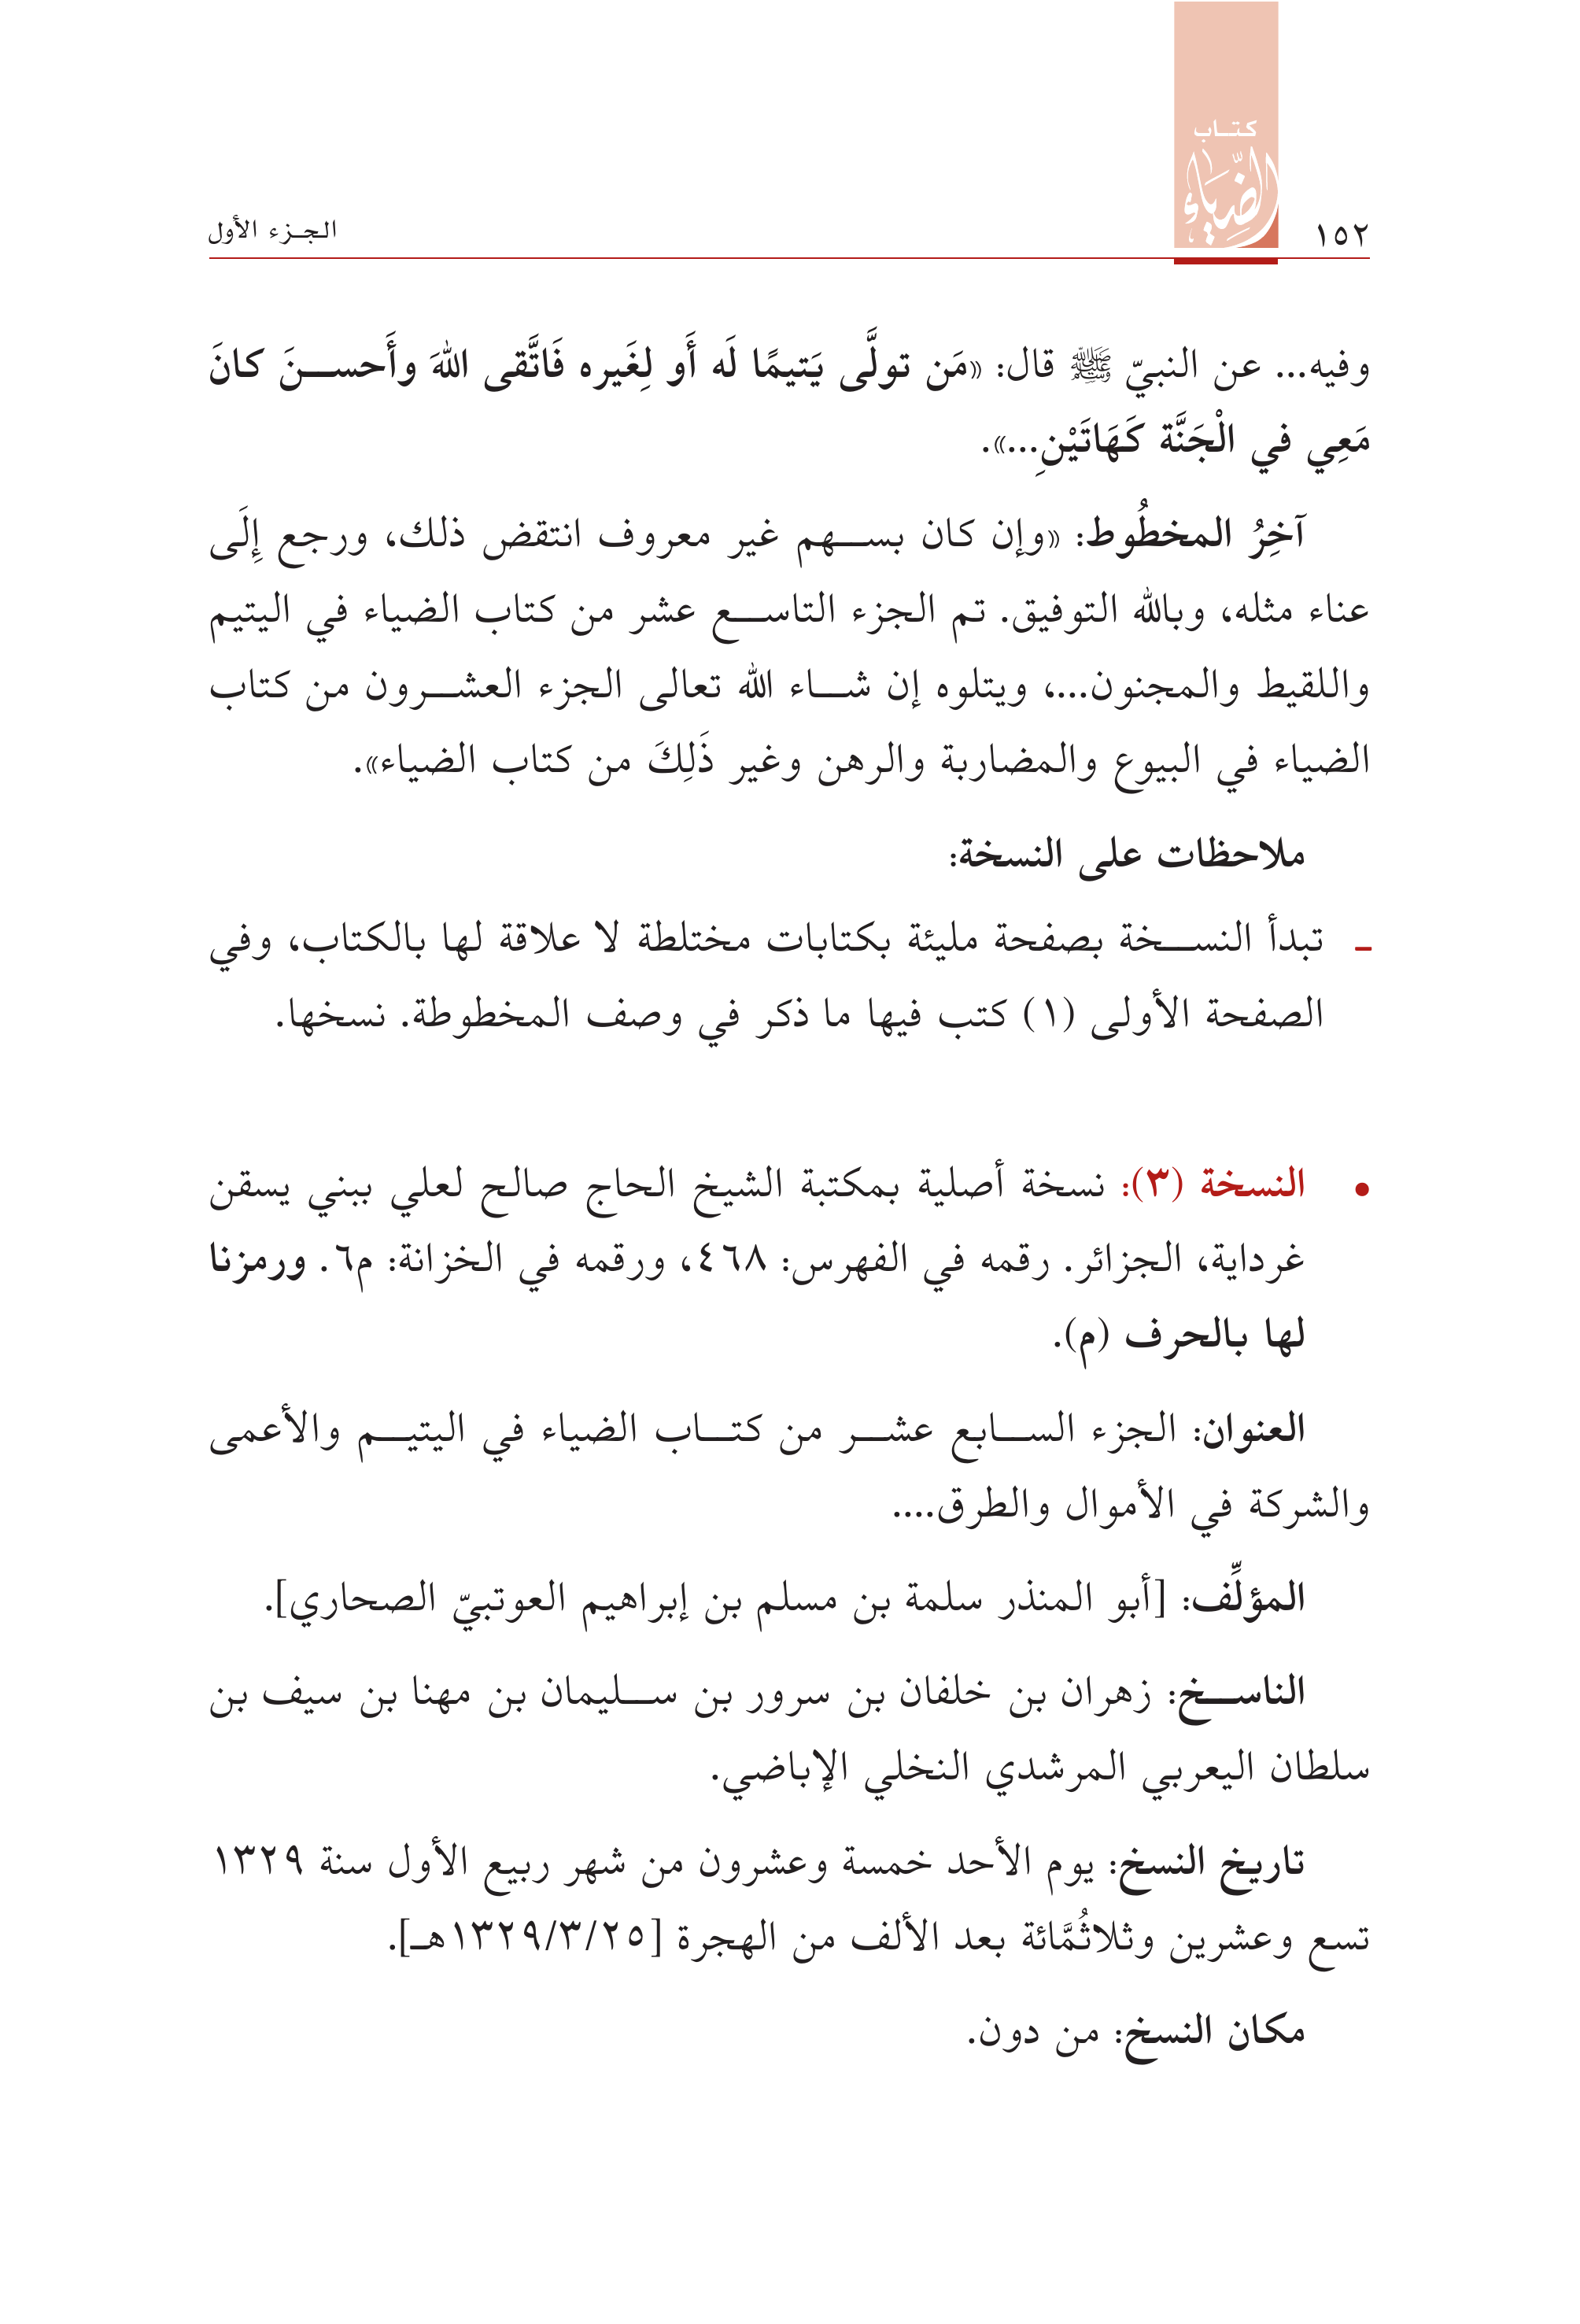 ١٥٢
كتاب
الضِّيَاء
الجزء الأول
وفيه... عن النبيّ ﷺ قال: «مَن تولَّى يَتيمًا لَه أَو لِغَيره فَاتَّقى اللهَ وأَحسنَ كانَ
مَعِي في الْجَنَّة كَهَاتَيْنِ...».
آخِرُ المخطُوط: «وإن كان بسهم غير معروف انتقض ذلك، ورجع إِلَى
عناء مثله، وبالله التوفيق. تم الجزء التاسع عشر من كتاب الضياء في اليتيم
واللقيط والمجنون...، ويتلوه إن شاء الله تعالى الجزء العشرون من كتاب
الضياء في البيوع والمضاربة والرهن وغير ذَلِكَ من كتاب الضياء».
ملاحظات على النسخة:
ـ تبدأ النسخة بصفحة مليئة بكتابات مختلطة لا علاقة لها بالكتاب، وفي
الصفحة الأولى (١) كتب فيها ما ذكر في وصف المخطوطة. نسخها.
• النسخة (٣): نسخة أصلية بمكتبة الشيخ الحاج صالح لعلي ببني يسقن
غرداية، الجزائر. رقمه في الفهرس: ٤٦٨، ورقمه في الخزانة: م٦. ورمزنا
لها بالحرف (م).
العنوان: الجزء السابع عشر من كتاب الضياء في اليتيم والأعمى
والشركة في الأموال والطرق....
المؤلِّف: [أبو المنذر سلمة بن مسلم بن إبراهيم العوتبيّ الصحاري].
الناسخ: زهران بن خلفان بن سرور بن سليمان بن مهنا بن سيف بن
سلطان اليعربي المرشدي النخلي الإباضي.
تاريخ النسخ: يوم الأحد خمسة وعشرون من شهر ربيع الأول سنة ١٣٢٩
تسع وعشرين وثلاثُمَّائة بعد الألف من الهجرة [١٣٢٩/٣/٢٥هـ].
مكان النسخ: من دون.